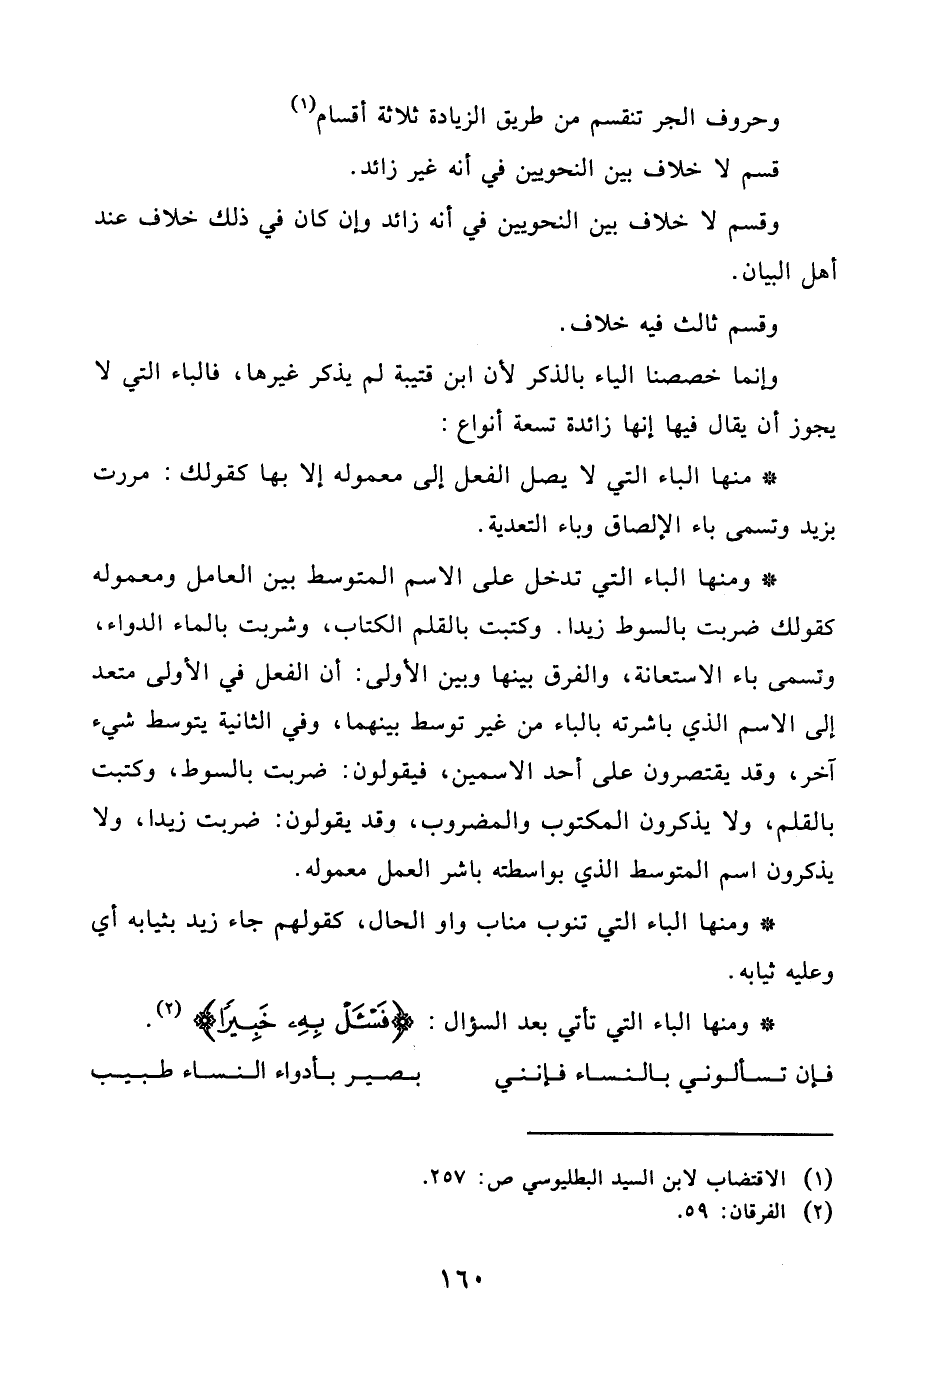 وحروف الجر تنقسم من طريق الزيادة ثلاثة أقسام(١)
قسم لا خلاف بين النحويين في أنه غير زائد.
وقسم لا خلاف بين النحويين في أنه زائد وإن كان في ذلك خلاف عند
أهل البيان.
وقسم ثالث فيه خلاف.
وإنما خصصنا الياء بالذكر لأن ابن قتيبة لم يذكر غيرها، فالباء التي لا
يجوز أن يقال فيها إنها زائدة تسعة أنواع :
* منها الباء التي لا يصل الفعل إلى معموله إلا بها كقولك : مررت
بزيد وتسمى باء الإلصاق وباء التعدية.
* ومنها الباء التي تدخل على الاسم المتوسط بين العامل ومعموله
كقولك ضربت بالسوط زيدا. وكتبت بالقلم الكتاب، وشربت بالماء الدواء،
وتسمى باء الاستعانة، والفرق بينها وبين الأولى: أن الفعل في الأولى متعد
إلى الاسم الذي باشرته بالباء من غير توسط بينهما، وفي الثانية يتوسط شيء
آخر، وقد يقتصرون على أحد الاسمين، فيقولون: ضربت بالسوط، وكتبت
بالقلم، ولا يذكرون المكتوب والمضروب، وقد يقولون: ضربت زيدا، ولا
يذكرون اسم المتوسط الذي بواسطته باشر العمل معموله.
* ومنها الباء التي تنوب مناب واو الحال، كقولهم جاء زيد بثيابه أي
وعليه ثيابه.
* ومنها الباء التي تأتي بعد السؤال : ﴿فَسْـَٔلْ بِهِۦ خَبِيرًا﴾ (٢).
فإن تسألوني بالنساء فإنني بصير بأدواء النساء طبيب
(١) الاقتضاب لابن السيد البطليوسي ص: ٢٥٧.
(٢) الفرقان: ٥٩.
١٦٠